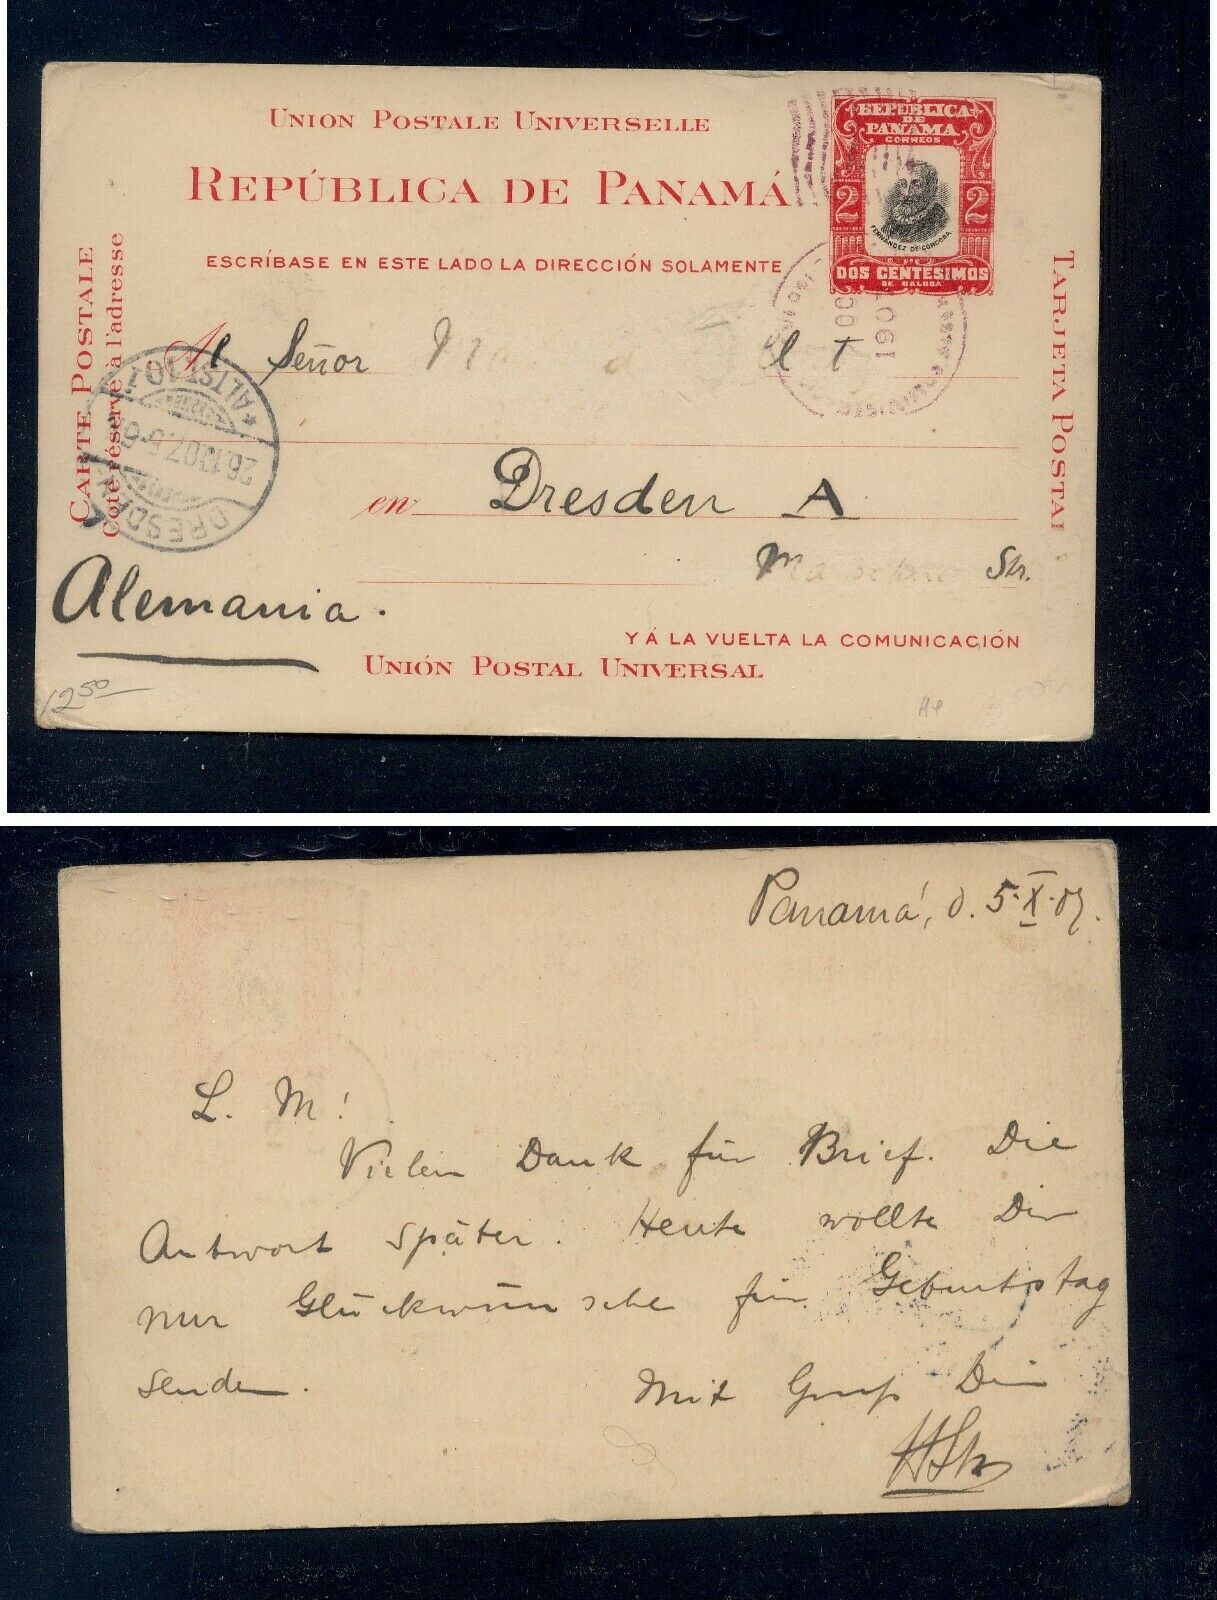 UNION POSTALE UNIVERSELLE
REPÚBLICA DE PANAMÁ
ESCRÍBASE EN ESTE LADO LA DIRECCIÓN SOLAMENTE
REPÚBLICA
DE
PANAMA
CORREOS
2 2
FERNANDEZ DE CORDOBA
DOS CENTÉSIMOS
DE BALBOA
CARTE POSTALE
Coté réservé à l'adresse
TARJETA POSTAL
Al Señor
DRESDEN
26.10.07.5-6
*ALTST.10 1
en Dresden A
Str.
Alemania.
Y Á LA VUELTA LA COMUNICACIÓN
UNIÓN POSTAL UNIVERSAL
12 50
Panamá, d. 5.X.07.
L. M!
Vielen Dank für Brief. Die
Antwort später. Heute wollte Dir
nur Glückwünsche für Geburtstag
senden. Mit Gruß Dein